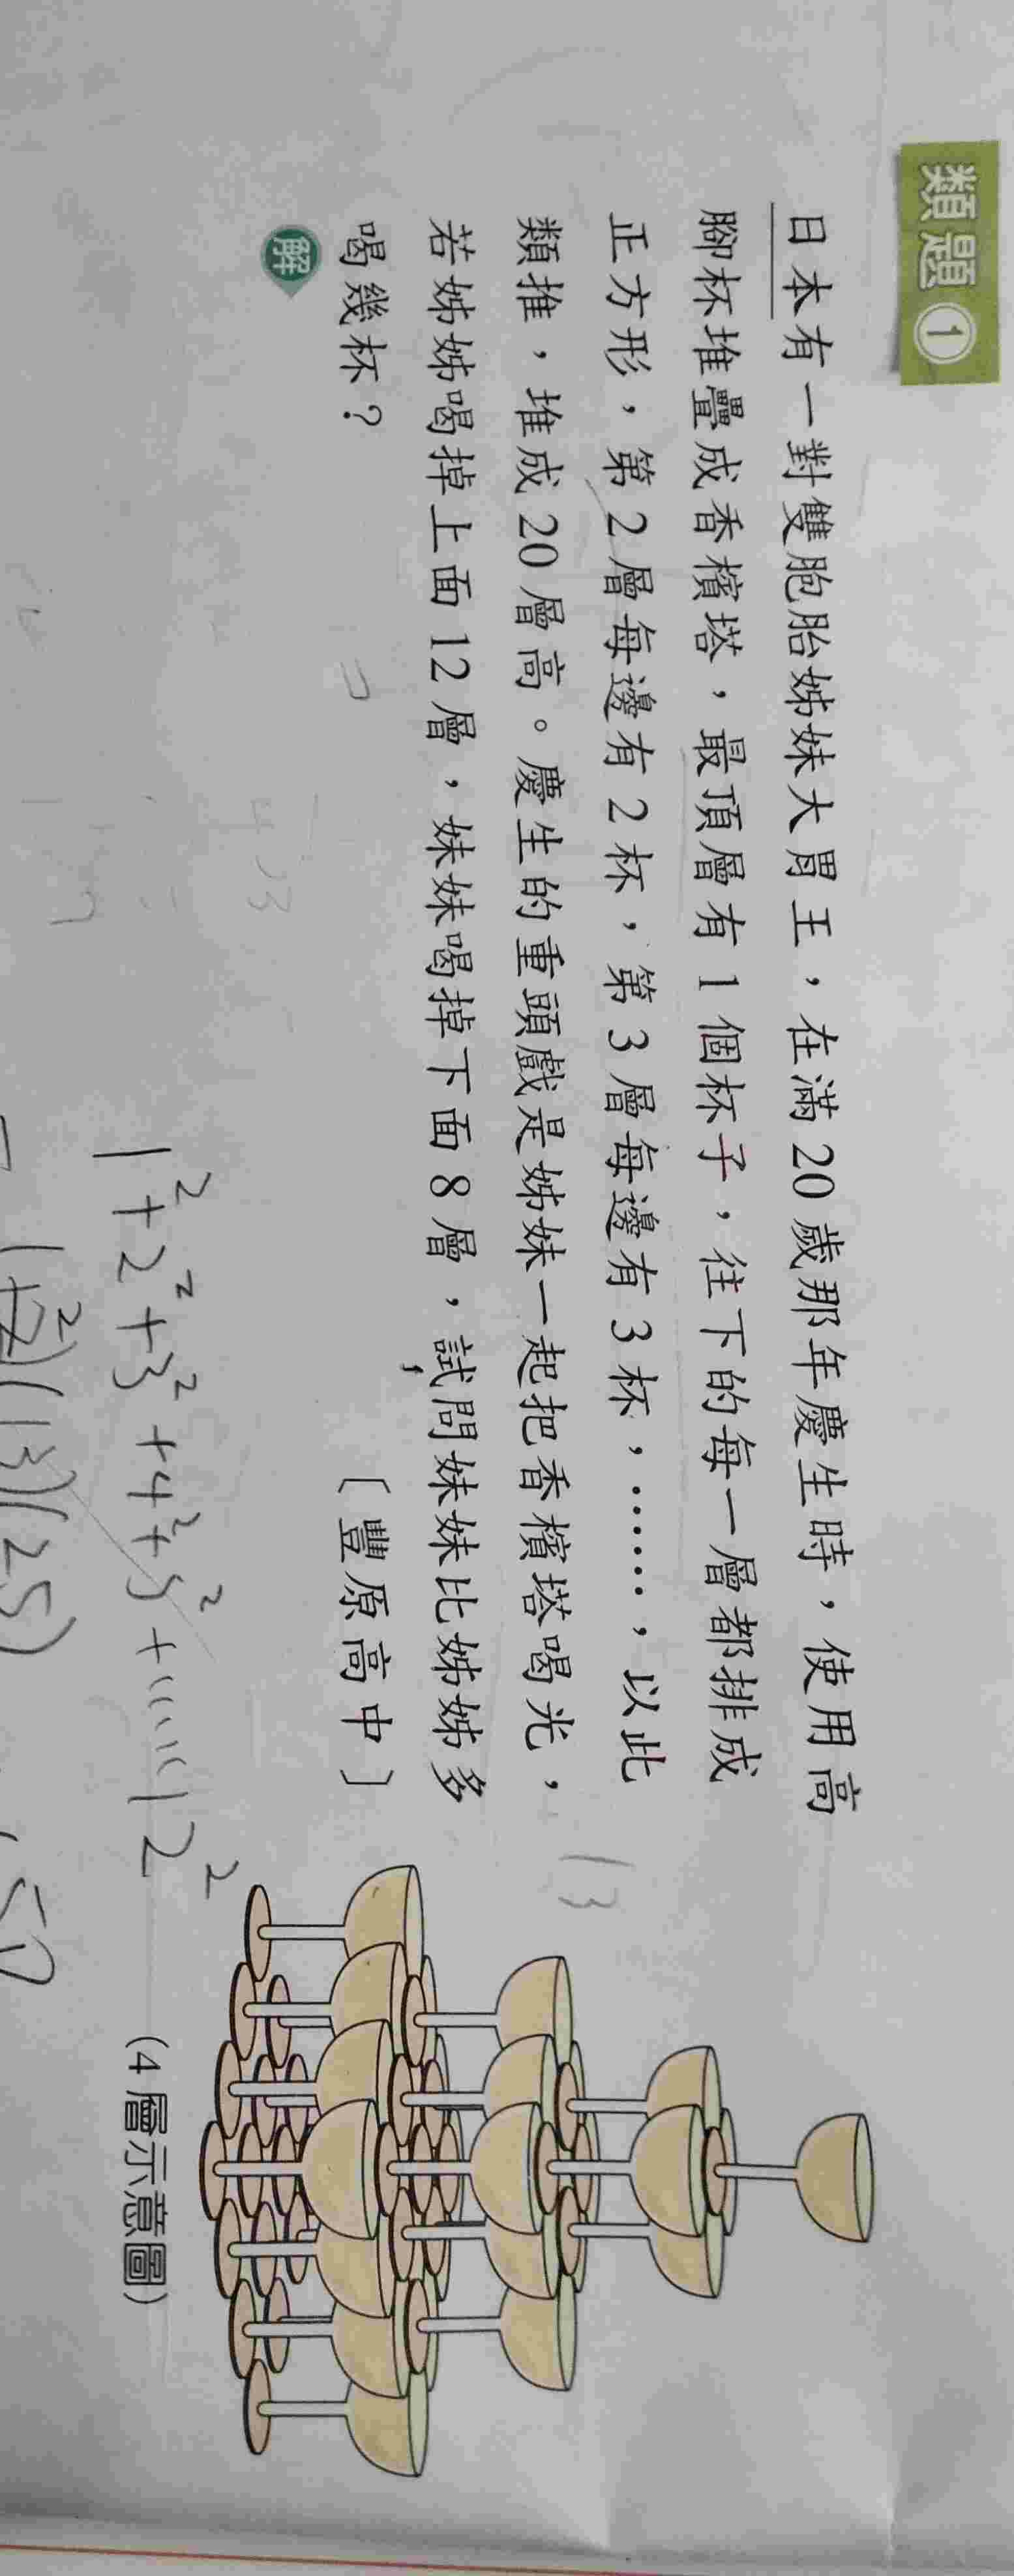 類題 1
日本有一對雙胞胎姊妹大胃王，在滿 20 歲那年慶生時，使用高
腳杯堆疊成香檳塔，最頂層有 1 個杯子，往下的每一層都排成
正方形，第 2 層每邊有 2 杯，第 3 層每邊有 3 杯，……，以此
類推，堆成 20 層高。慶生的重頭戲是姊妹一起把香檳塔喝光，
若姊姊喝掉上面 12 層，妹妹喝掉下面 8 層，試問妹妹比姊姊多
喝幾杯？
〔豐原高中〕
解
13
1²+2²+3²+4²+5²+
12²
(13)(25)
(4 層示意圖)